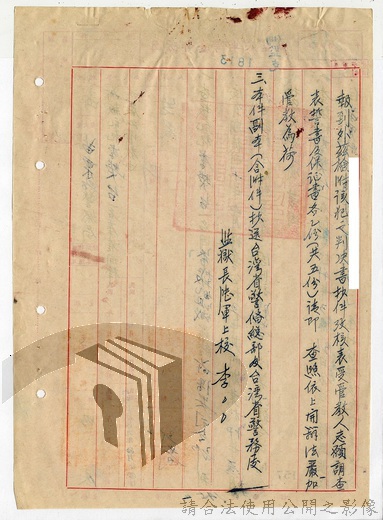 報到外玆檢附該犯之判決書抄件考核表受管教人志願調查
表誓書及保証書各乙份（共五份）請即 查照依上開辦法嚴加
管教為荷
三、本件副本（含附件）抄送台灣省警備總部及台灣省警務處
監獄長陸軍上校 李
請合法使用公開之影像